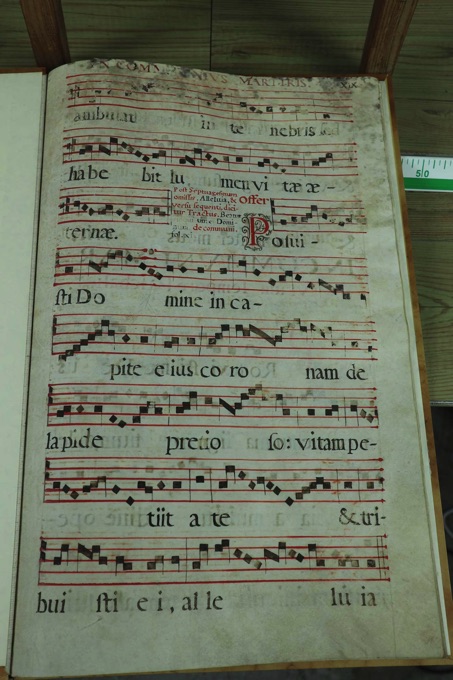 MARTIRIS. XIX
ambulat in te nebris sed
habe bit lu men vi tæ æ-
ternæ.
Post Septuagesimam
omisso, Alleluia, &
versu sequenti, dici
tur Tractus,
de communi,
offer
Posui-
sti Do mine in ca-
pite eius co ro nam de
lapide pretio so: vitam pe-
tiit a te & tri-
bui sti e i, al le lu ia
50